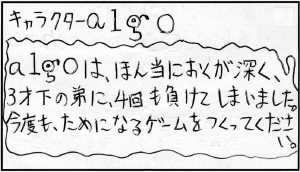 キャラクターalgo
algoは、ほん当におくが深く、
3才下の弟に、4回も負けてしまいました。
今度も、ためになるゲームをつくってくださ
い。